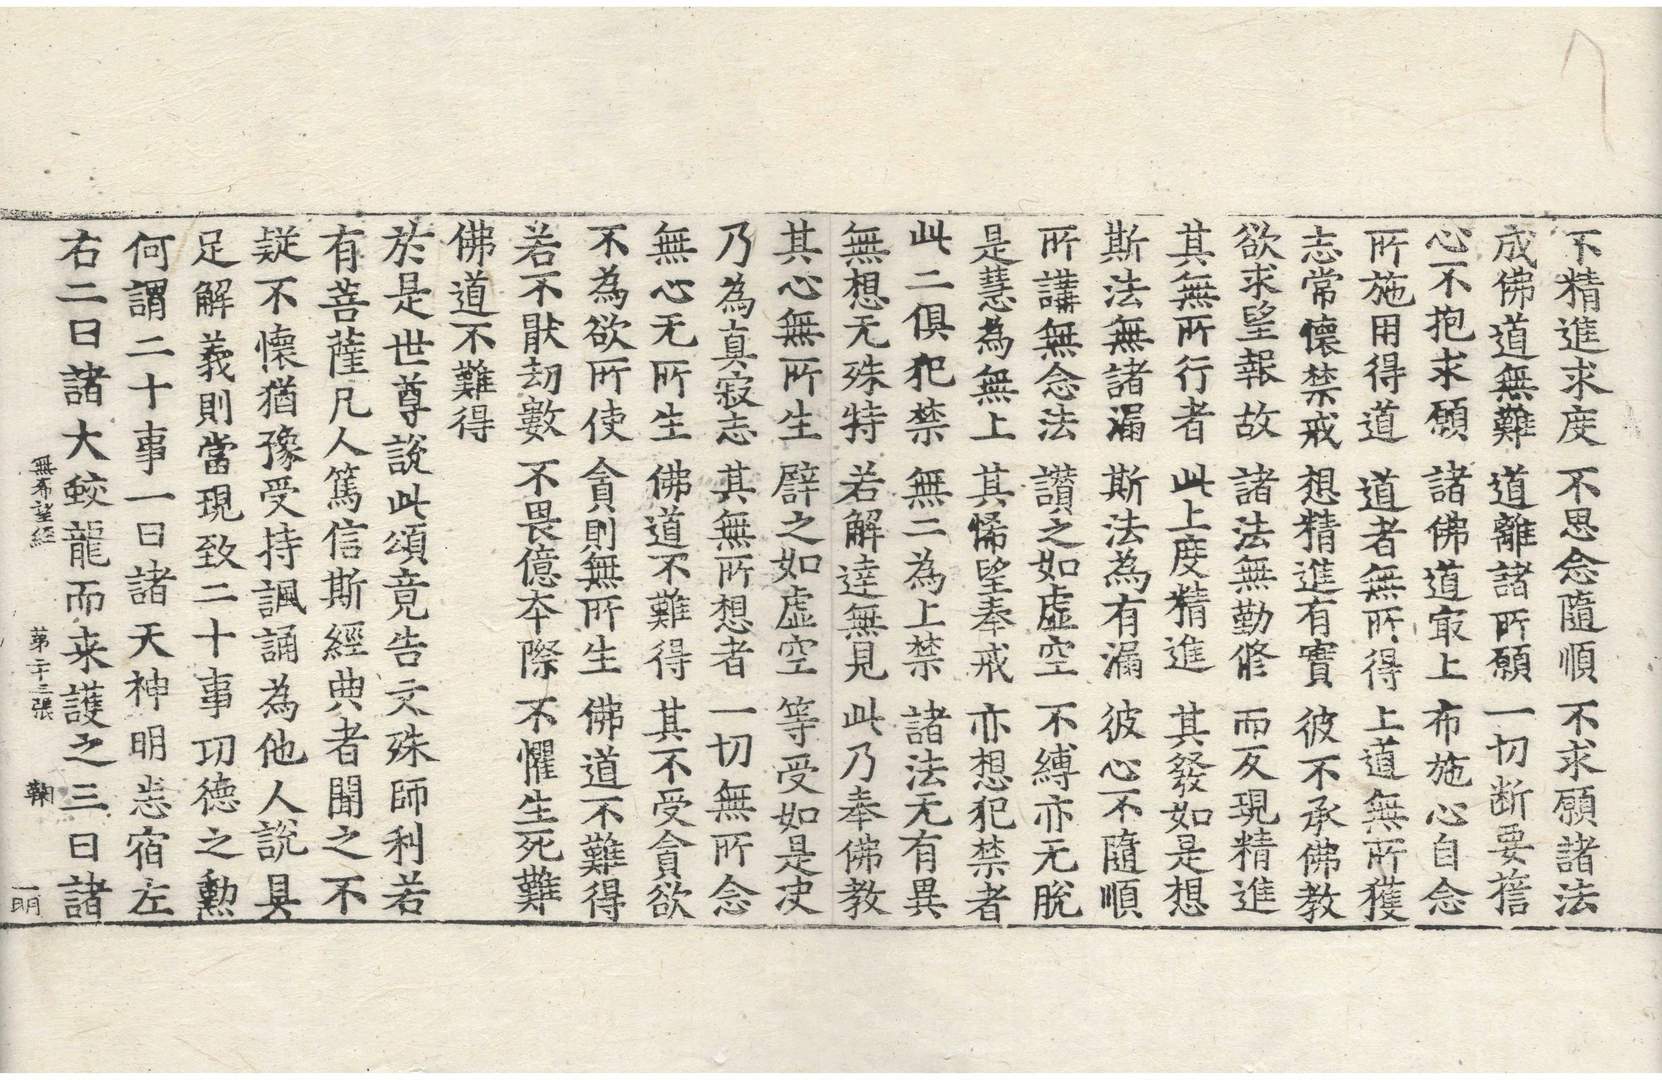 不精進求度 不思念隨順 不求願諸法
成佛道無難 道離諸所願 一切断要揩
心不抱求願 諸佛道㝡上 布施心自念
所施用得道 道者無所得 上道無所獲
志常懷禁戒 想精進有實 彼不承佛教
欲求望報故 諸法無勤修 而反現精進
其無所行者 此上度精進 其發如是想
斯法無諸漏 斯法為有漏 彼心不隨順
所講無念法 讚之如虛空 不縛亦无脫
是慧為無上 其悕望奉戒 亦想犯禁者
此二俱犯禁 無二為上禁 諸法无有異
無想无殊特 若解達無見 此乃奉佛教
其心無所生 譬之如虛空 等受如是决
乃為真寂志 其無所想者 一切無所念
無心无所生 佛道不難得 其不受貪欲
不為欲所使 貪則無所生 佛道不難得
若不猒劫數 不畏億本際 不懼生死難
佛道不難得
於是世尊說此頌竟告文殊師利若
有菩薩凡人篤信斯經典者聞之不
疑不懷猶豫受持諷誦為他人說具
足解義則當現致二十事功德之勲
何謂二十事一曰諸天神明恙宿左
右二曰諸大蛟龍而来護之三曰諸
無希望經 第二十三張 鞠 一明